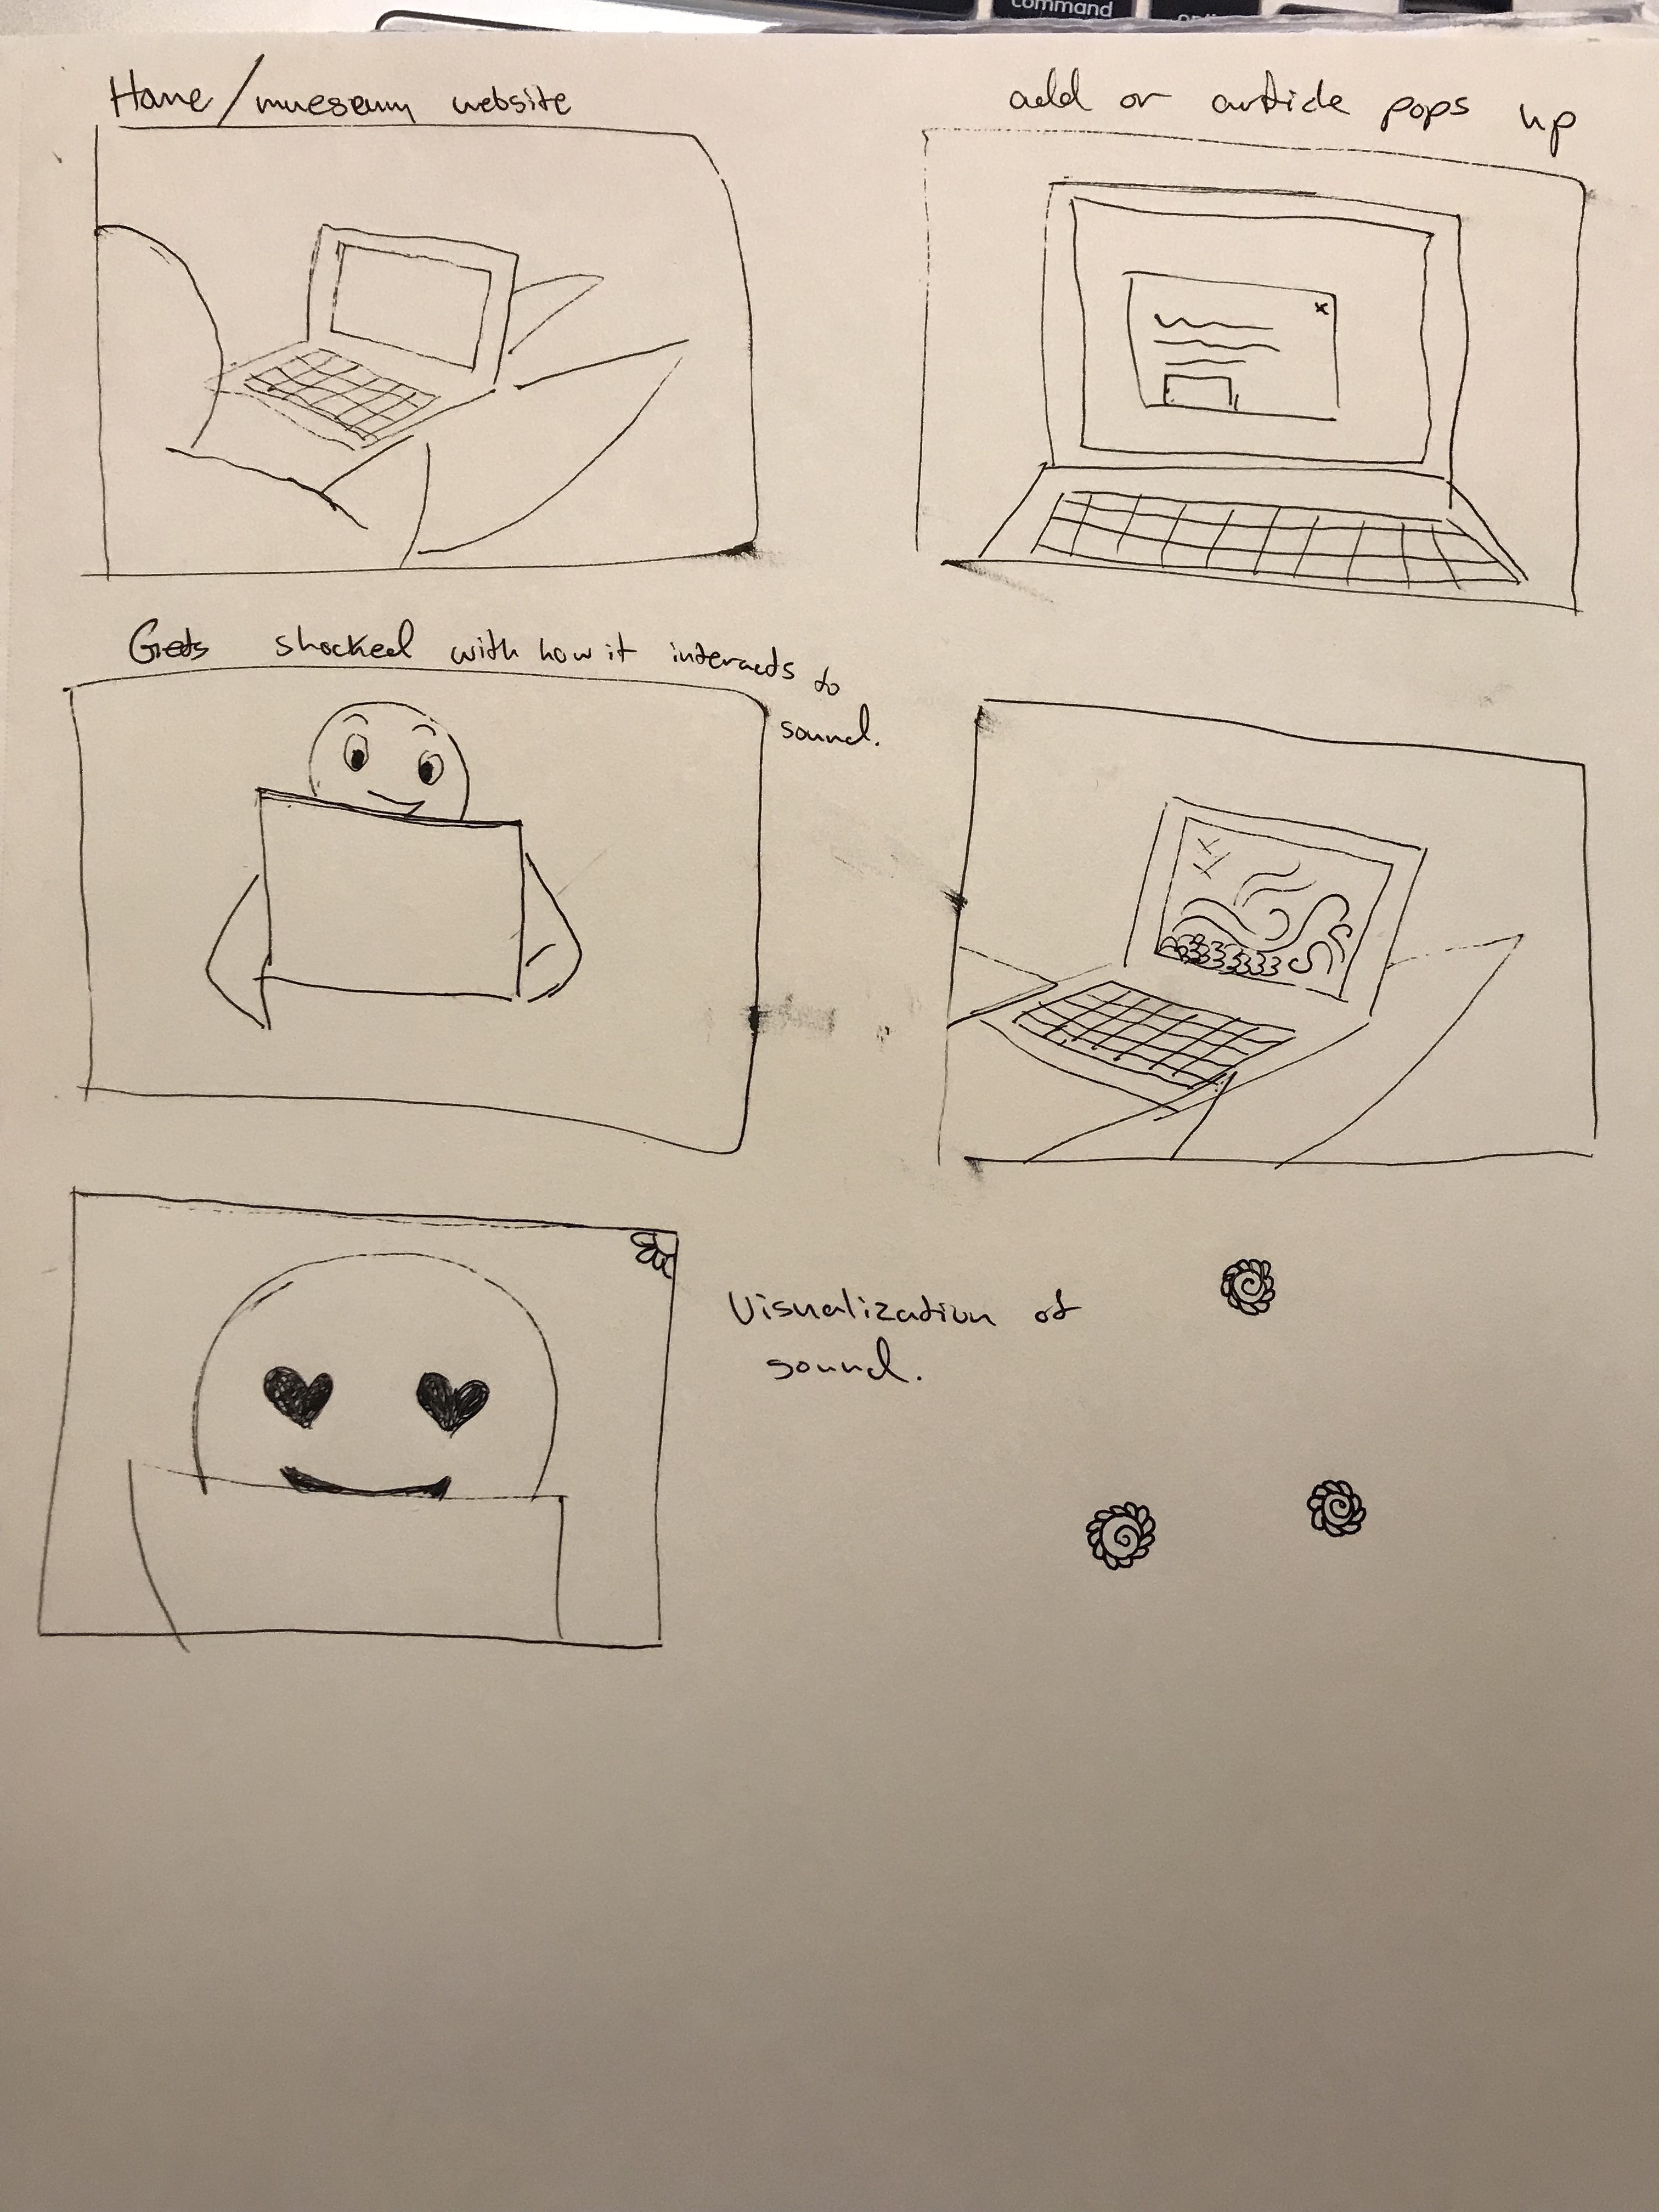 command
Home/mueseum website
add or article pops up
Gets shocked with how it interacts to
sound.
Visualization of
sound.